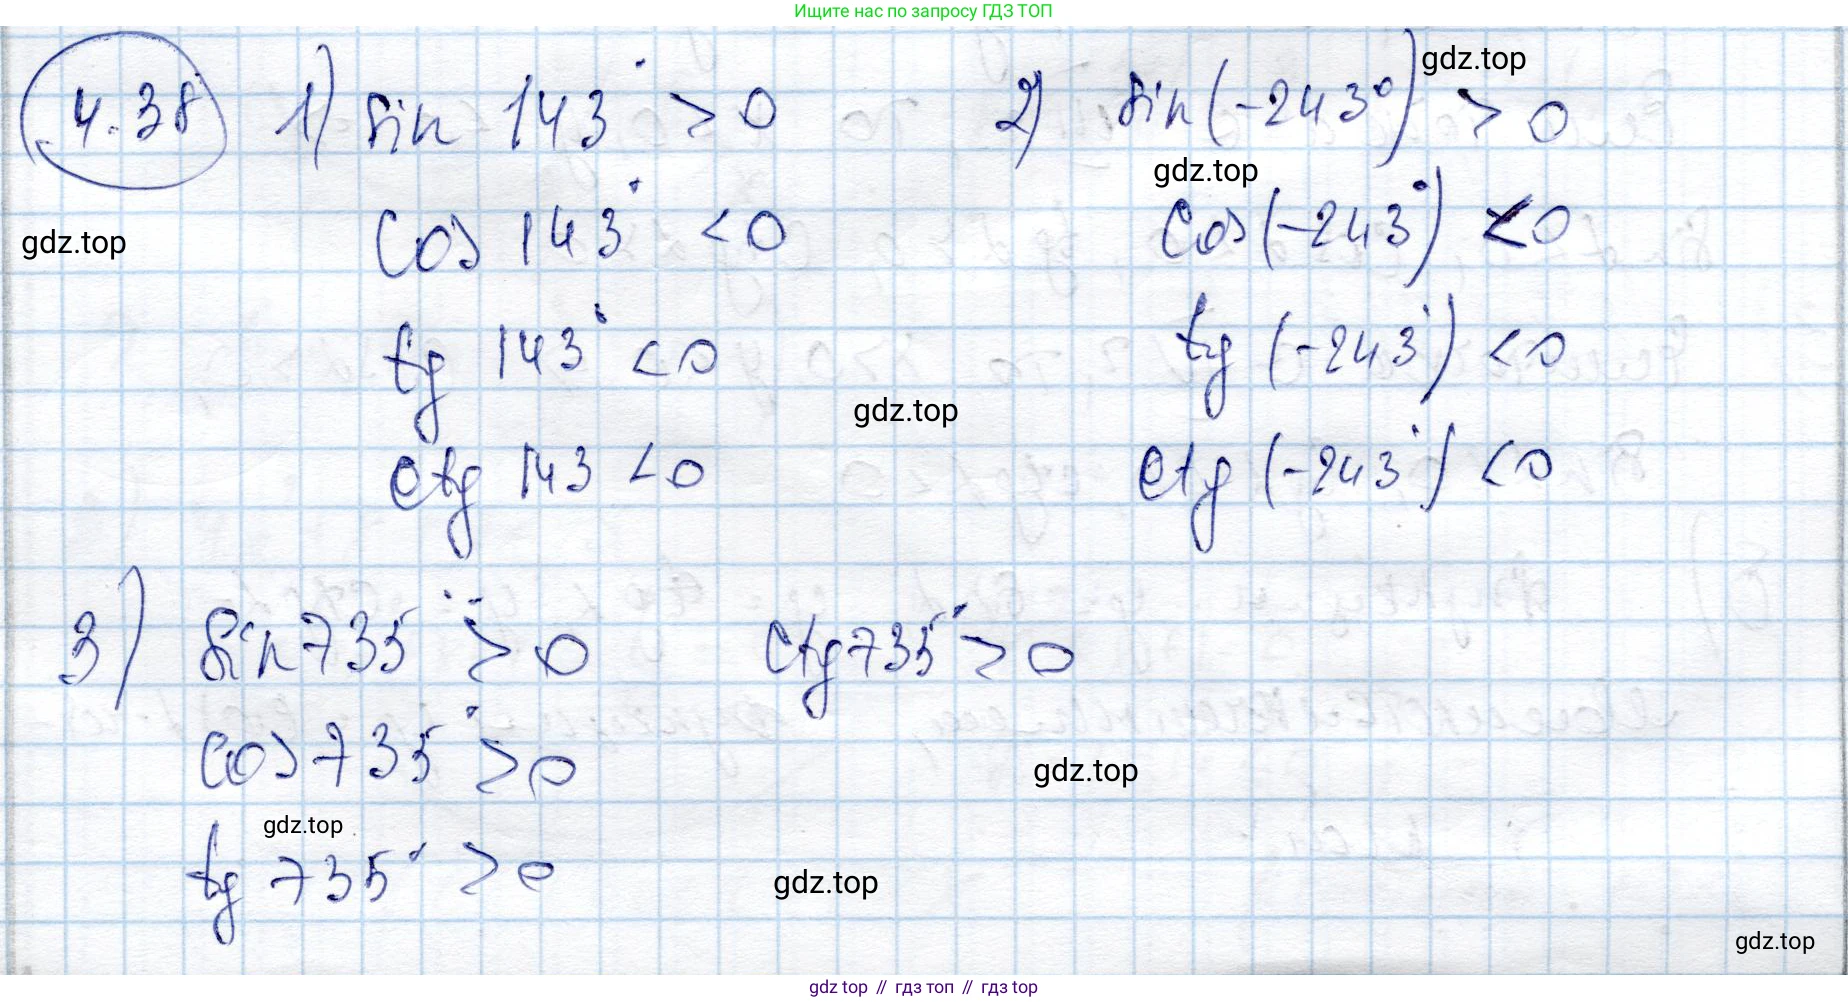 Ищите нас по запросу ГДЗ ТОП
4.38 1) sin 143° > 0 2) sin(-243°) > 0
gdz.top
gdz.top
cos 143° < 0 cos(-243°) < 0
gdz.top
tg 143° < 0 tg (-243°) < 0
gdz.top
ctg 143 < 0 ctg (-243°) < 0
3) sin 735° > 0 ctg 735° > 0
cos 735° > 0
gdz.top
gdz.top
tg 735° > 0
gdz.top
gdz.top
gdz top // гдз топ // gdz top